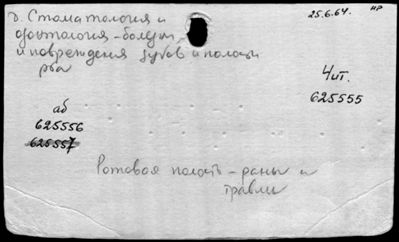 25.6.64. нр
2. Стоматология и
одонтология - болезни
и повреждения зубов и полости
рта
Чит.
625555
аб
625556
625557
Ротовая полость - раны и
травмы